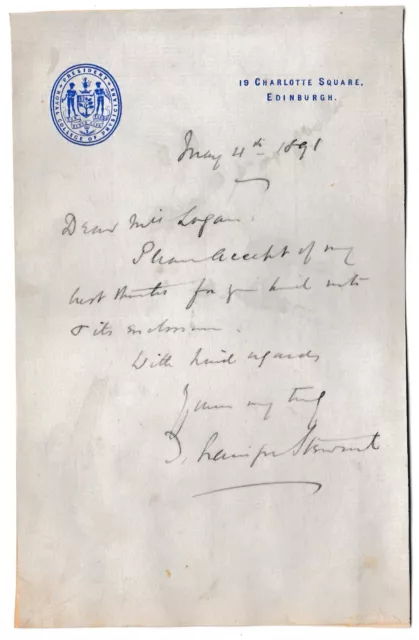 PRESIDENT
ROYAL COLLEGE OF PHYSICIANS
19 CHARLOTTE SQUARE,
EDINBURGH.
May 4th 1891
Dear Mrs Logan,
Please accept of my
best thanks for your kind note
& its enclosure.
With kind regards
Yours very truly
T. Grainger Stewart